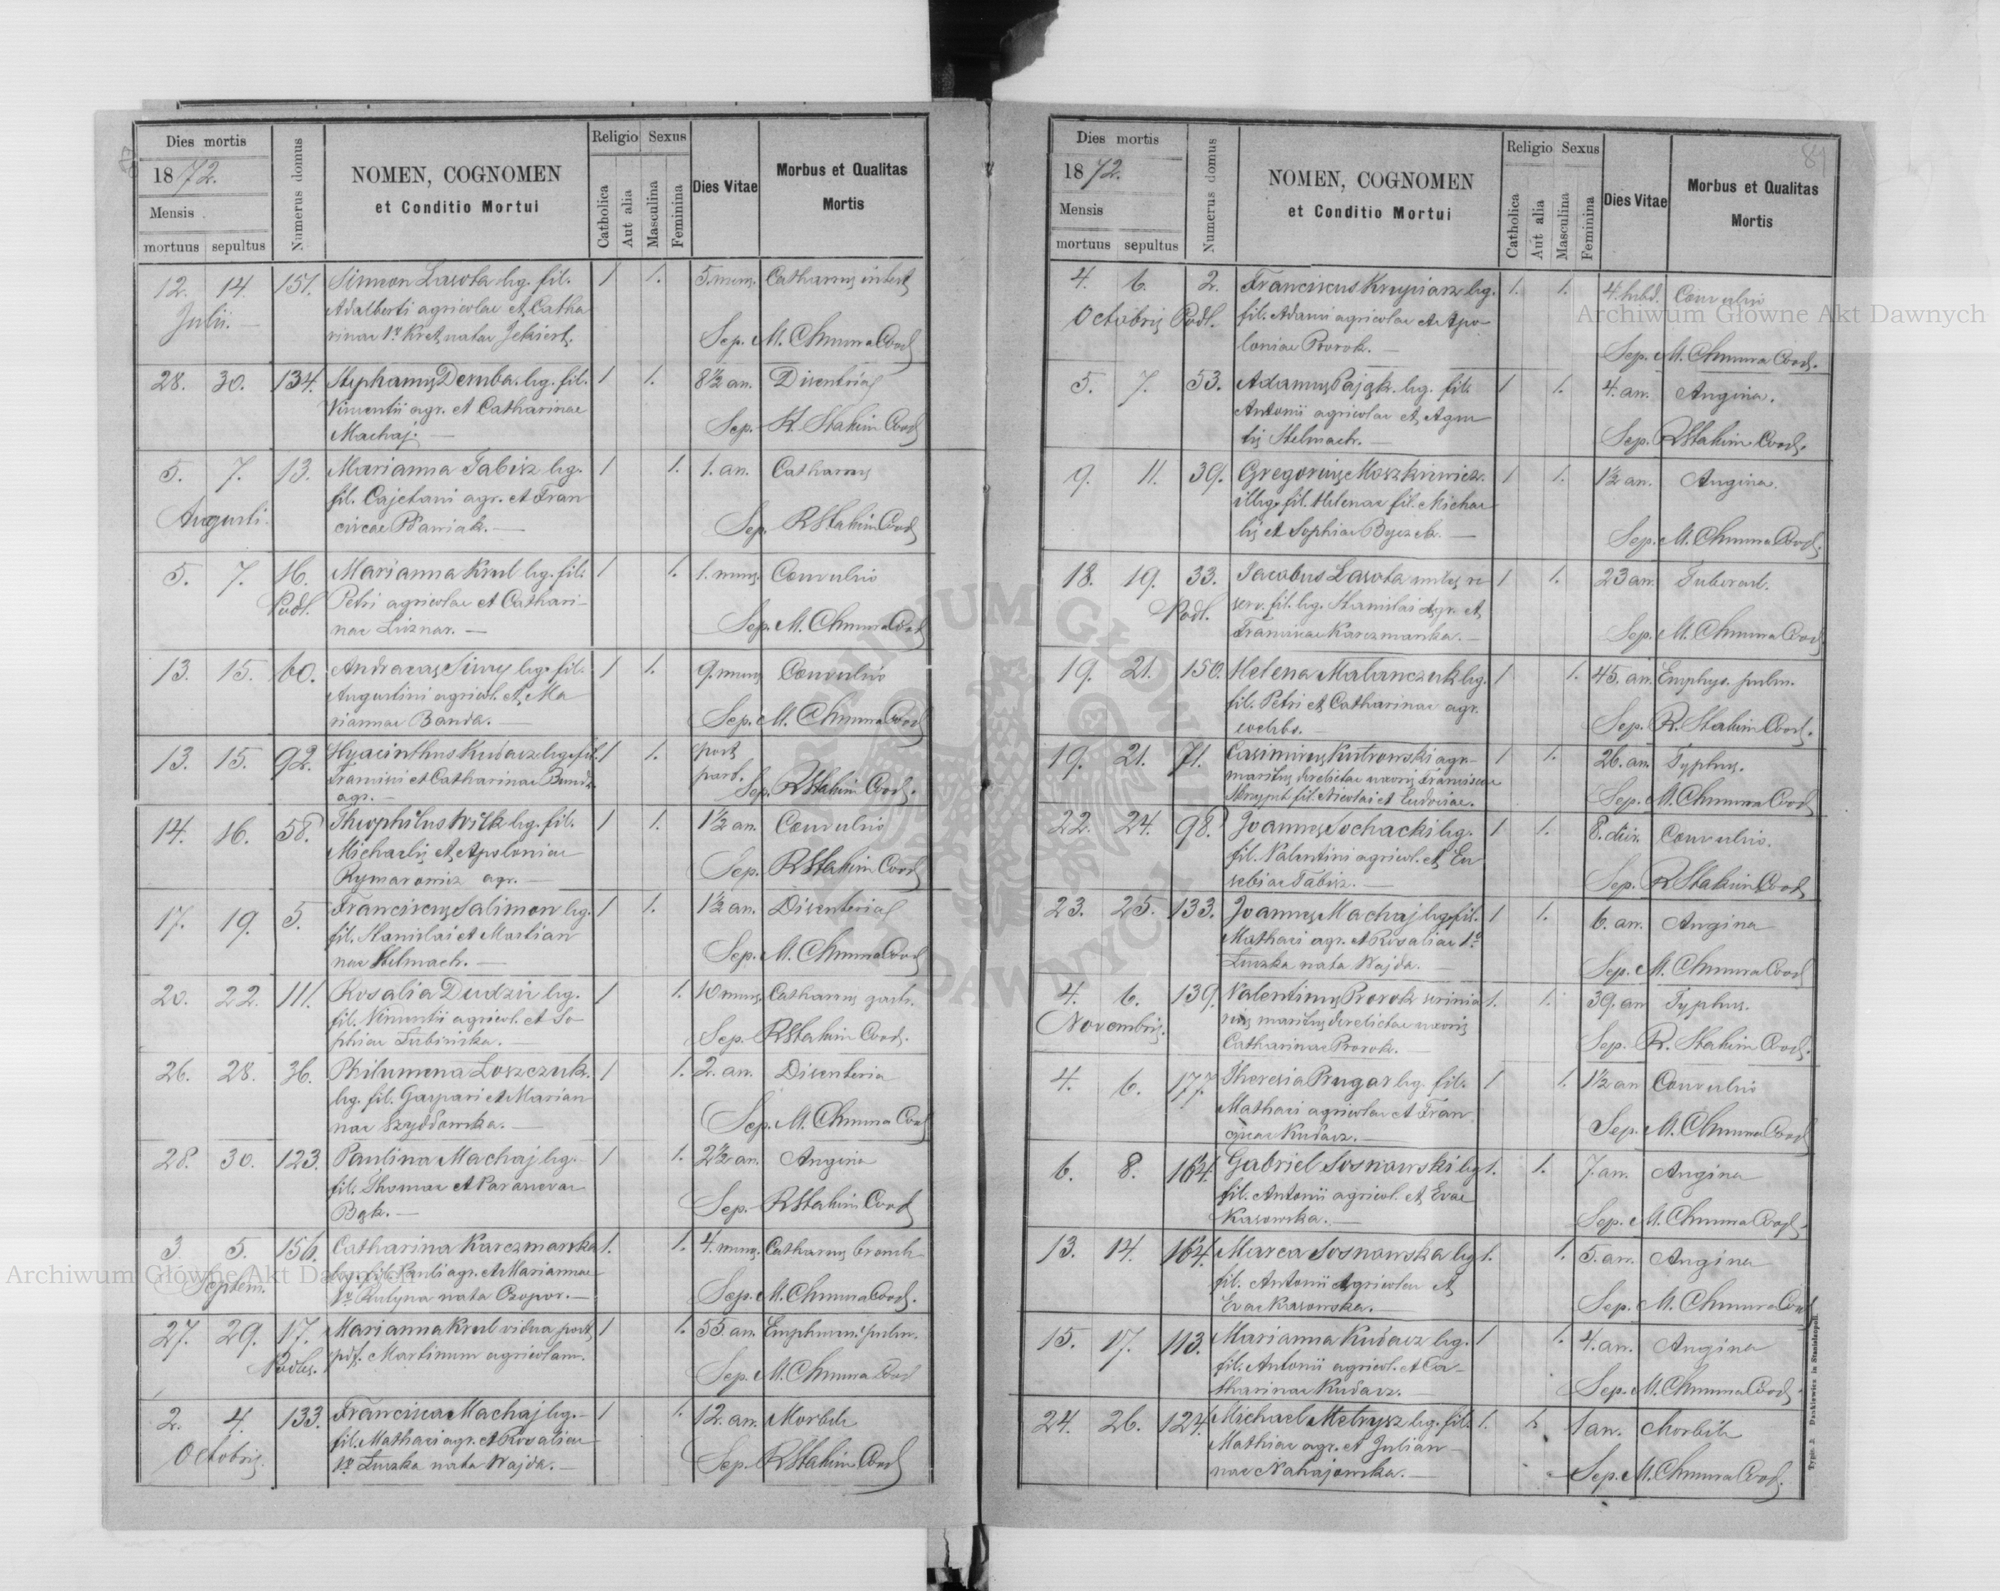 Dies mortis
1872.
Mensis
mortuus sepultus
Numerus domus
NOMEN, COGNOMEN
et Conditio Mortui
Religio
Catholica
Aut alia
Sexus
Masculina
Feminina
Dies Vitae
Morbus et Qualitas
Mortis
12. 14. 151. Simeon Lasota leg. fil. 1 1. 5. mens. Catharrus intest
Julii. Adalberti agricolae et Catha
rinae 1º Kret nata
Sep. M. Chmura Cood
28. 30. 134. Stephanus Demba leg. fil. 1 1. 8½ an. Disenteria
Vincentii agr. et Catharinae
Machaj. Sep. R. Stakim Cood
5. 7. 13. Marianna Tabisz leg. 1 1. 1. an. Catharrus
fil. Cajetani agr. et Fran
Augusti ciscae Sep. RStakim Cood
5. 7. 16. Marianna Krul leg. fil. 1 1. 1. mens. Convulsio
Podl. Petri agricolae et Cathari-
nae Sep. M. Chmura Cood
13. 15. 60. Andreas Siwy leg. fil. 1 1. 9. mens. Convulsio
Augustini agricol. et Ma
riannae Banda. Sep. M. Chmura Cood
13. 15. 92. Hyacinthus Kudasz leg. fil. 1 1. post
Francisci et Catharinae Banda part.
agr. Sep. RStakim Cood.
14. 16. 58. Theophilus Wilk leg. fil. 1 1. 1½ an. Convulsio
Michaelis et Apoloniae
Rymarowicz agr. Sep. RStakim Cood
17. 19. 5. Franciscus Salimon leg. 1 1. 1½ an. Disenteria
fil. Stanislai et Marian
nae Stelmach. Sep. M. Chmura Cood
20. 22. 111. Rosalia Dudzic leg. 1 1. 10 mens. Catharrus
fil. Vincentii agricol. et So-
phiae Sep. RStakim Cood.
26. 28. 36. Philumena Loszczuk. 1 1. 2. an. Disenteria
leg. fil. Gaspari et Marian
nae Szydłowska. Sep. M. Chmura Cood
28. 30. 123. Paulina Machaj leg. 1 1. 2½ an. Angina
fil. Thomae et Parascevae
Bąk. Sep. RStakim Cood
3. 5. 156. Catharina Karczmarska 1. 1. 4. mens. Catharrus bronch
Septem. leg. fil. Pauli agr. et Mariannae
nata Czopor. Sep. M. Chmura Cood.
27. 29. 17. Marianna Krul vidua post 1 1. 55. an.
Podles. Martinum agricolam. Sep. M. Chmura Cood
2. 4. 133. Francisca Machaj leg. 1 1. 12. an. Morbili
Octobris. fil. Mathaei agr. et Rosaliae
1º Luszka nata Wajda. Sep. RStakim Cood
Dies mortis
1872.
Mensis
mortuus sepultus
Numerus domus
NOMEN, COGNOMEN
et Conditio Mortui
Religio
Catholica
Aut alia
Sexus
Masculina
Feminina
Dies Vitae
Morbus et Qualitas
Mortis
81
4. 6. 2. Franciscus leg. 1. 1. 4. hebd. Convulsio
Octobris Podl. fil. Adami agricolae et Apo-
loniae Prorok. Sep. M. Chmura Cood.
5. 7. 53. Adamus Pająk. leg. fil. 1 1. 4. an. Angina.
Antonii agricolae et Agne
tis Stelmach. Sep. RStakim Cood.
9. 11. 39. Gregorius Moszkiewicz. 1 1. 1½ an. Angina.
illeg. fil. Helenae fil. Michae
lis et Sophiae Byczek. Sep. M. Chmura Cood.
18. 19. 33. Jacobus Lasota miles re 1 1. 23 an. Tubercul.
Podl. serv. fil. leg. Stanislai agr. et
Franciscae Karczmarska. Sep. M. Chmura Cood
19. 21. 150. Helena Malanczuk leg. 1 1. 45. an. Emphys. pulm.
fil. Petri et Catharinae agr.
coelebs. Sep. R. Stakim Cood.
19. 21. 71. Casimirus Kutrowski agr. 1 1. 26. an. Typhus.
maritus derelictae uxoris Franciscae
fil. Nicolai et Ludovicae. Sep. M. Chmura Cood
22. 24. 98. Joannes Sochacki leg. 1 1. 8. dier. Convulsio.
fil. Valentini agricol. et Eu
sebiae Tabisz. Sep. RStakim Cood
23. 25. 133. Joannes Machaj leg. fil. 1 1. 6. an. Angina
Mathaei agr. et Rosaliae 1º
Luszka nata Wajda. Sep. M. Chmura Cood
4. 6. 139. Valentinus Prorok 1. 1. 39. an Typhus.
Novembris. maritus derelictae uxoris
Catharinae Prorok. Sep. R. Stakim Cood.
4. 6. 177. Theresia Prugar leg. fil. 1 1. 1½ an Convulsio
Mathaei agricolae et Fran
ciscae Kudasz. Sep. M. Chmura Cood
6. 8. 164. Gabriel Sosnowski leg 1. 1. 7. an. Angina
fil. Antonii agricol. et Evae
Krasowska. Sep. M. Chmura Cood.
13. 14. 164. Marca Sosnowska leg 1. 1. 5. an. Angina
fil. Antonii Agricolae et
Evae Krasowska. Sep. M. Chmura Cood
15. 17. 113. Marianna Kudasz leg. 1 1. 4. an. Angina
fil. Antonii agricol. et Ca-
tharinae Kudasz. Sep. M. Chmura Cood.
24. 26. 124. Michael Metrysz leg. fil. 1. 1. 1 an. Morbili
Mathiae agr. et Julian-
nae Nahajowska. Sep. M. Chmura Cood.
Typis J. Dankiewicz in Stanislaopoli.
Archiwum Główne Akt Dawnych
Archiwum Główne Akt Dawnych
ARCHIWUM GŁÓWNE AKT DAWNYCH